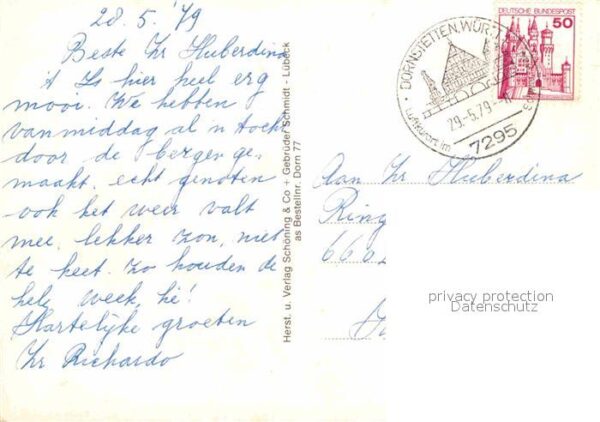 28.5.'79
Beste Zr Huberdina
't Is hier heel erg
mooi. We hebben
vanmiddag al 'n tocht
door de bergen ge-
maakt, echt genoten
ook het weer valt
mee. lekker zon, niet
te heet. Zo houden de
hele week, hè!
Hartelijke groeten
Zr Richardo
Herst. u. Verlag Schöning & Co + Gebrüder Schmidt - Lübeck
as Bestellnr. Dorn 77
DEUTSCHE BUNDESPOST
50
DORNSTETTEN, WÜRTT
29.-5.79
Luftkurort im
7295
Aan Zr Huberdina
Ring
6602
privacy protection
Datenschutz